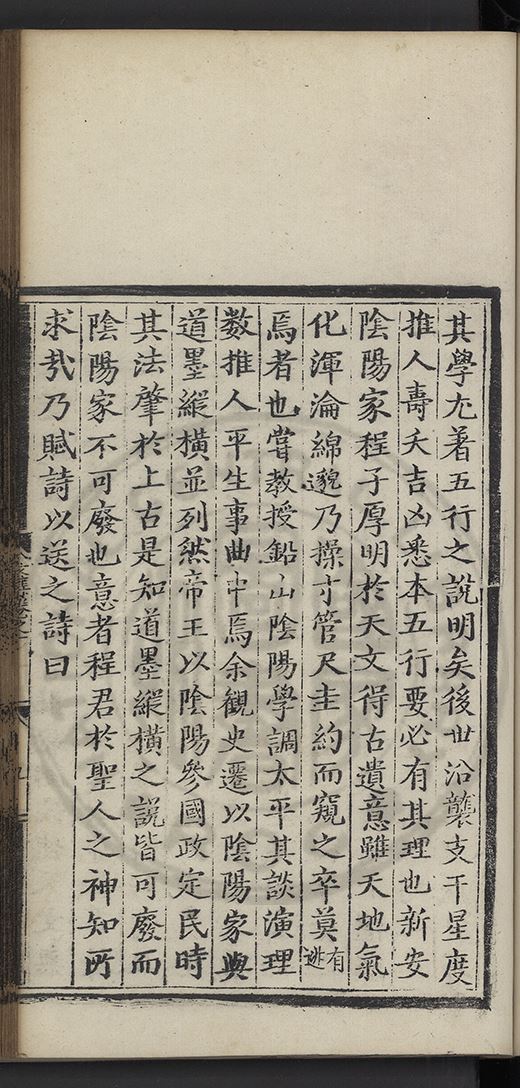 其學尤著五行之說明矣後世沿襲支干星度
推人壽夭吉凶悉本五行要必有其理也新安
陰陽家程子厚明於天文得古遺意雖天地氣
化渾淪綿邈乃操寸管尺圭約而窺之卒莫有逃
焉者也嘗教授鉛山陰陽學調太平其談演理
數推人平生事曲中焉余觀史遷以陰陽家與
道墨縱橫並列然帝王以陰陽參國政定民時
其法肇於上古是知道墨縱橫之說皆可廢而
陰陽家不可廢也意者程君於聖人之神知所
求㢤乃賦詩以送之詩曰